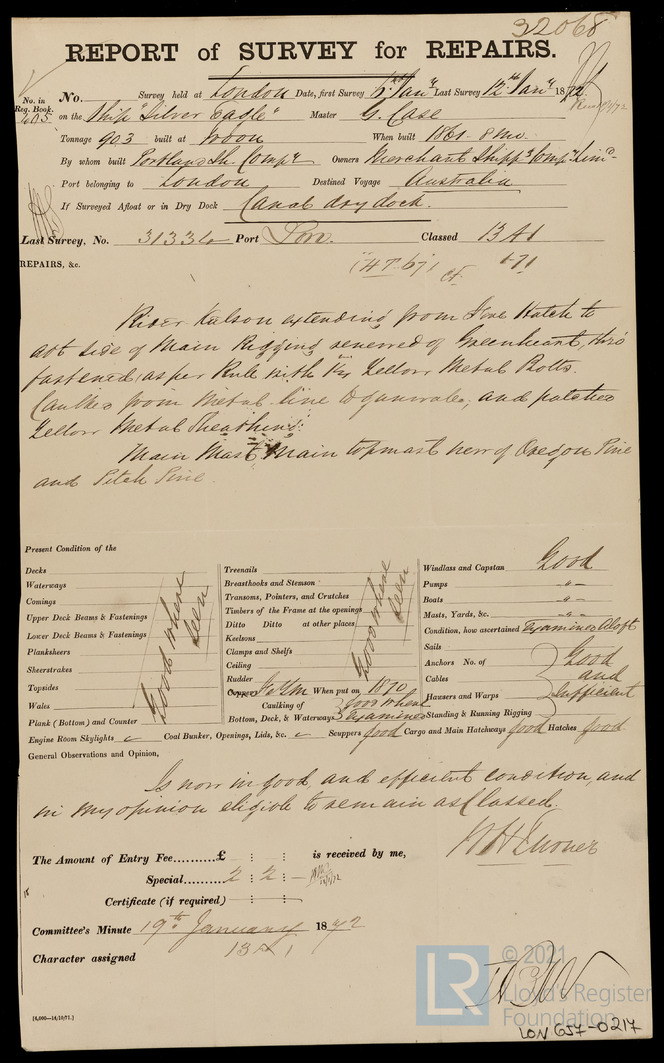 32068
REPORT of SURVEY for REPAIRS.
No. in Reg. Book. 605 No. Survey held at London Date, first Survey Jany Last Survey 12th Jany 1872
on the Ship "Silver Eagle" Master G. Case
Tonnage 903 built at When built 1861 - 8 mo.
By whom built Portland Sh. Compy Owners Merchant Shippg Compy Limd
Port belonging to London Destined Voyage Australia
If Surveyed Afloat or in Dry Dock Canal dry dock.
Last Survey, No. 31334 Port Lon. Classed 13 A1
REPAIRS, &c.
Rider Kelson extending from Fore Hatch to
aft side of Main Rigging renewed of Greenheart, thro'
fastened, as per Rule with Yellow Metal Bolts.
Caulked from Metal line to gunwale, and patched
Yellow Metal Sheathing.
Main Mast, Main topmast new of Oregon Pine
and Pitch Pine.
Present Condition of the
Decks
Waterways
Comings
Upper Deck Beams & Fastenings
Lower Deck Beams & Fastenings
Planksheers
Sheerstrakes
Topsides
Wales
Plank (Bottom) and Counter
Good where seen
Treenails
Breasthooks and Stemson
Transoms, Pointers, and Crutches
Timbers of the Frame at the openings
Ditto Ditto at other places
Keelsons
Clamps and Shelfs
Ceiling
Rudder
Good where seen
Copper When put on 1870
Caulking of Good where
Bottom, Deck, & Waterways Examined
Windlass and Capstan Good
Pumps -"-
Boats -"-
Masts, Yards, &c. -"-
Condition, how ascertained Examined Aloft
Sails
Anchors No. of
Cables
Hawsers and Warps
Standing & Running Rigging
Good and Sufficient
Engine Room Skylights Coal Bunker, Openings, Lids, &c. Scuppers good Cargo and Main Hatchways good Hatches good
General Observations and Opinion,
Is now in good and efficient condition, and
in my opinion eligible to remain as Classed.
The Amount of Entry Fee..........£ : : is received by me,
Special.......... 2 : 2 : -
Certificate (if required) : :
Committee's Minute 19th January 1872
Character assigned 13 A 1
[6,000—14/10/71.]
LR © 2021
Lloyd's Register
Foundation
LON 657-0217